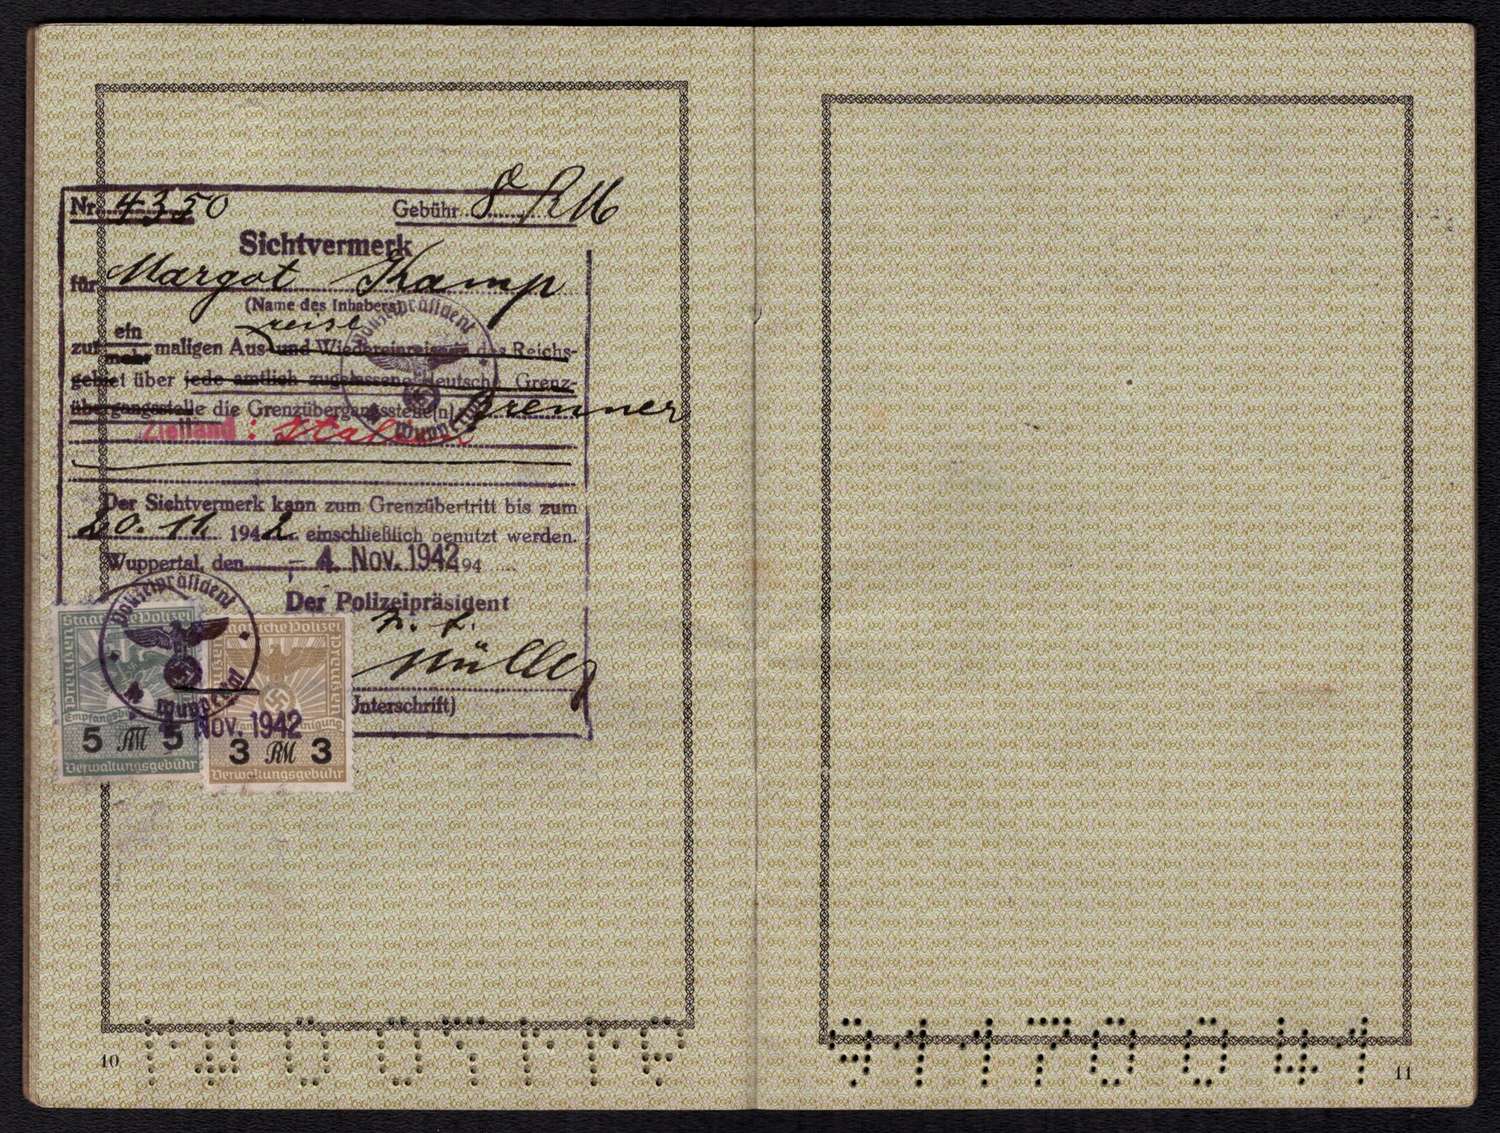 Nr. 4350 Gebühr 8 RM
Sichtvermerk
für Margot Kamp
(Name des Inhabers)
reise
ein
zur mehr maligen Aus- und Wiedereinreise des Reichs-
gebiet über jede amtlich zugelassene deutsche Grenz-
übergangsstelle die Grenzübergangsstelle(n) Brenner
Zielland: Italien
Der Sichtvermerk kann zum Grenzübertritt bis zum
20. 11. 1942 einschließlich benutzt werden.
Wuppertal, den - 4. Nov. 1942 194
Der Polizeipräsident
Müller
(Unterschrift)
Polizeipräsident
Wuppertal
Polizeipräsident
Wuppertal
Staatliche Polizei
Preußen
5 RM 5
Verwaltungsgebühr
Staatliche Polizei
Preußen
Nov. 1942
3 RM 3
Verwaltungsgebühr
10
11